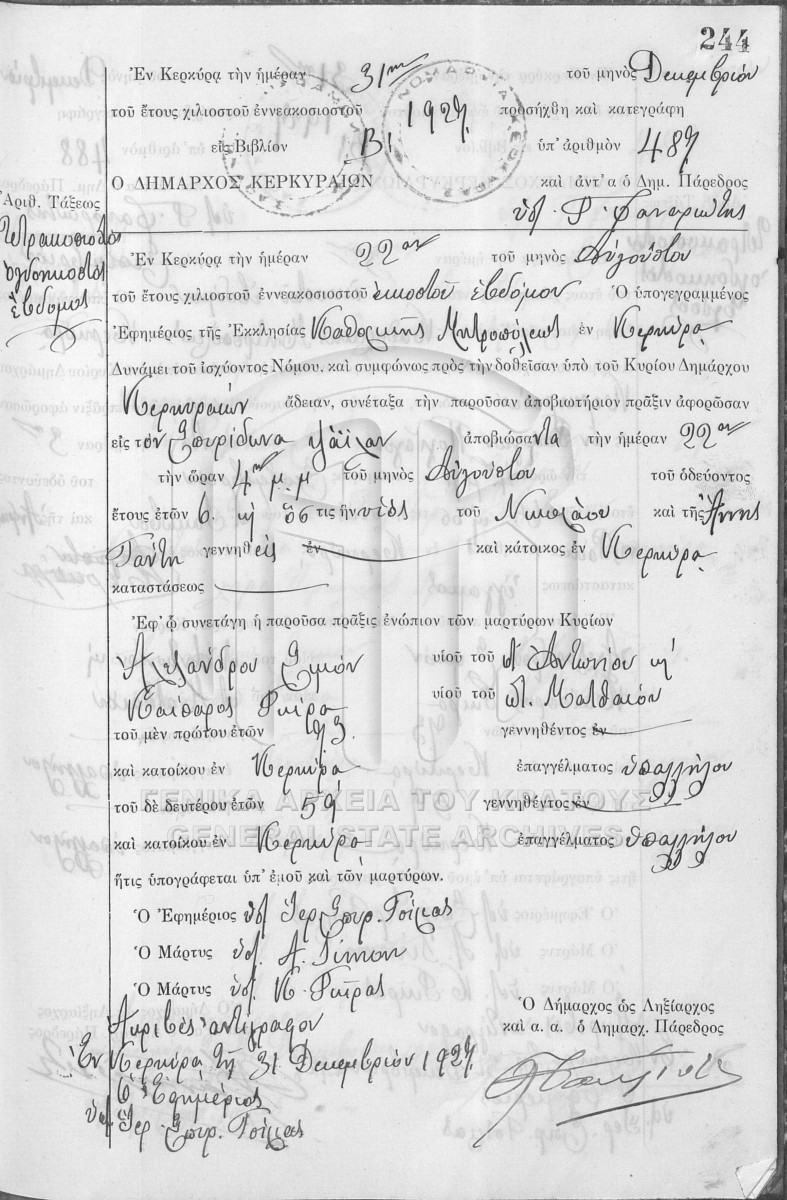 244
Ἐν Κερκύρᾳ τὴν ἡμέραν 31ην τοῦ μηνὸς Δεκεμβρίου
τοῦ ἔτους χιλιοστοῦ ἐννεακοσιοστοῦ 1927 προσήχθη καὶ κατεγράφη
εἰς Βιβλίον Β1 ὑπ' ἀριθμὸν 487
Ο ΔΗΜΑΡΧΟΣ ΚΕΡΚΥΡΑΙΩΝ καὶ ἀντ' α ὁ Δημ. Πάρεδρος
Ἀριθ. Τάξεως
Τετρακοσιοστὸς
ὀγδοηκοστὸς
ἕβδομος
Ἐν Κερκύρᾳ τὴν ἡμέραν 22αν τοῦ μηνὸς Αὐγούστου
τοῦ ἔτους χιλιοστοῦ ἐννεακοσιοστοῦ εἰκοστοῦ ἑβδόμου Ὁ ὑπογεγραμμένος
Ἐφημέριος τῆς Ἐκκλησίας Καθολικῆς Μητροπόλεως ἐν Κερκύρᾳ
Δυνάμει τοῦ ἰσχύοντος Νόμου, καὶ συμφώνως πρὸς τὴν δοθεῖσαν ὑπὸ τοῦ Κυρίου Δημάρχου
Κερκυραίων ἄδειαν, συνέταξα τὴν παροῦσαν ἀποβιωτήριον πρᾶξιν ἀφορῶσαν
εἰς τὸν Σπυρίδωνα ἀποβιώσαντα τὴν ἡμέραν 22αν
τὴν ὥραν 4ην μ.μ τοῦ μηνὸς Αὐγούστου τοῦ ὁδεύοντος
ἔτους ἐτῶν 6. ἢ ὅστις ἦν υἱὸς τοῦ Νικολάου καὶ τῆς Ἄννης
γεννηθεὶς ἐν καὶ κάτοικος ἐν Κερκύρᾳ
καταστάσεως
Ἐφ' ᾧ συνετάγη ἡ παροῦσα πρᾶξις ἐνώπιον τῶν μαρτύρων Κυρίων
Ἀλεξάνδρου Σιμὸν υἱοῦ τοῦ Ἀντωνίου
Γκίρα υἱοῦ τοῦ Ματθαίου
τοῦ μὲν πρώτου ἐτῶν 43. γεννηθέντος ἐν
καὶ κατοίκου ἐν Κερκύρᾳ ἐπαγγέλματος ὑπαλλήλου
τοῦ δὲ δευτέρου ἐτῶν 59 γεννηθέντος ἐν
ΓΕΝΙΚΑ ΑΡΧΕΙΑ ΤΟΥ ΚΡΑΤΟΥΣ
GENERAL STATE ARCHIVES
καὶ κατοίκου ἐν Κερκύρᾳ ἐπαγγέλματος ὑπαλλήλου
ἥτις ὑπογράφεται ὑπ' ἐμοῦ καὶ τῶν μαρτύρων.
Ὁ Ἐφημέριος Ἱερ. Σπυρ.
Ὁ Μάρτυς A. Simon
Ὁ Μάρτυς Κ. Γκίρας
Ὁ Δήμαρχος ὡς Ληξίαρχος
καὶ α. α. ὁ Δημαρχ. Πάρεδρος
Ἀκριβὲς ἀντίγραφον
Ἐν Κερκύρᾳ τῇ 31 Δεκεμβρίου 1927
Ὁ Ἐφημέριος
Ἱερ. Σπυρ.